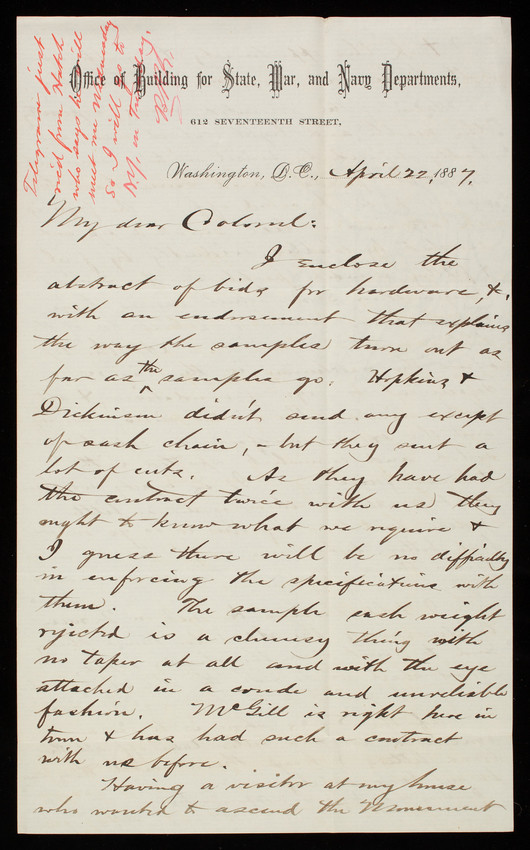 Telegram just
rec'd from Hatch
who says he will
meet me Wednesday
So I will go to
N.Y. on Tuesday.
Office of Building for State, War, and Navy Departments,
612 SEVENTEENTH STREET,
Washington, D.C., April 22, 1887.
My dear Colonel:
I enclose the
abstract of bids for hardware, &.
with an endorsement that explains
the way the samples turn out as
far as the samples go. Hopkins &
Dickinson didn't send any except
of sash chain, - but they sent a
lot of cuts. As they have had
the contract twice with us they
ought to know what we require &
I guess there will be no difficulty
in enforcing the specifications with
them. The sample sash weight
rejected is a clumsy thing with
no taper at all and with the eye
attached in a crude and unreliable
fashion. McGill is right here in
town & has had such a contract
with us before.
Having a visitor at my house
who wanted to ascend the Monument